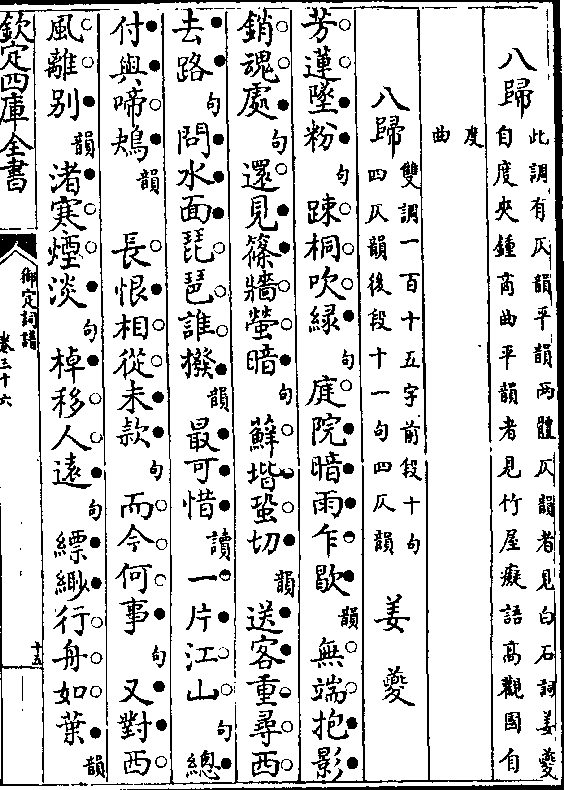 八歸
此調有仄韻平韻兩體仄韻者見白石詞姜夔
自度夾鍾商曲平韻者見竹屋癡語高觀國自
度
曲
八歸
雙調一百十五字前段十句
四仄韻後段十一句四仄韻
姜夔
芳蓮墜粉句踈桐吹緑句庭院暗雨乍歇韻無端抱影
銷魂處句還見篠牆螢暗句蘚堦蛩切韻送客重尋西
去路句問水面琵琶誰撥韻最可惜讀一片江山句總
付與啼鴂韻 長恨相從未款句而今何事句又對西
風離别韻渚寒煙淡句棹移人遠句縹緲行舟如葉韻
欽定四庫全書
御定詞譜
卷三十六
十五